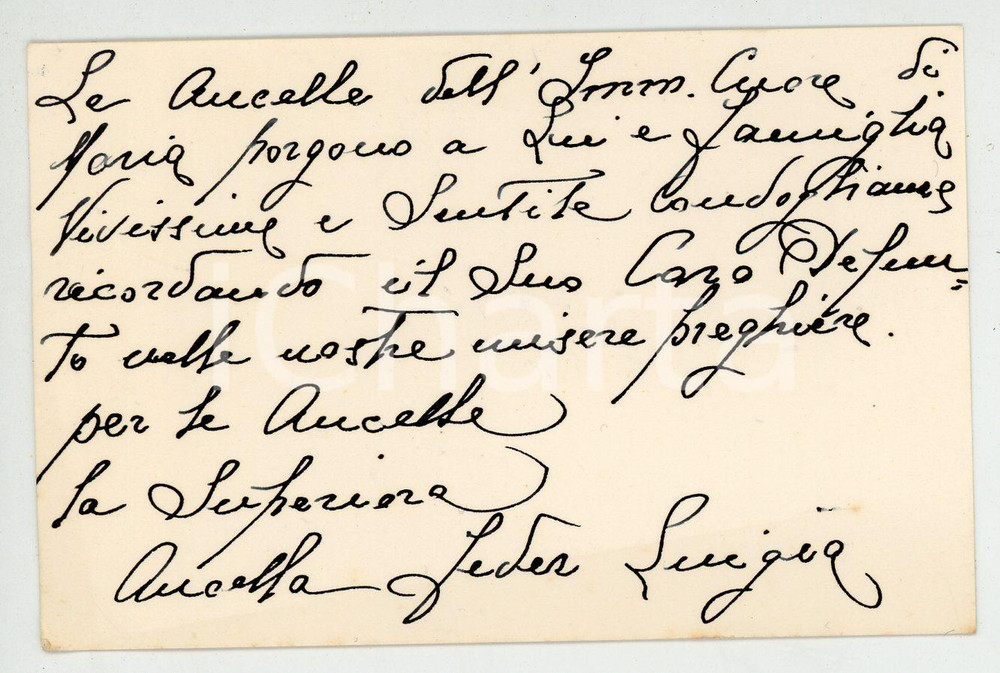 Le Ancelle dell' Imm. Cuore di
Maria porgono a Lui e famiglia
Vivissime e Sentite Condoglianze
ricordando il Suo Caro Defun=
to nelle nostre misere preghiere.
per le Ancelle
la Superiora
Ancella Feder Luigia
iCharta